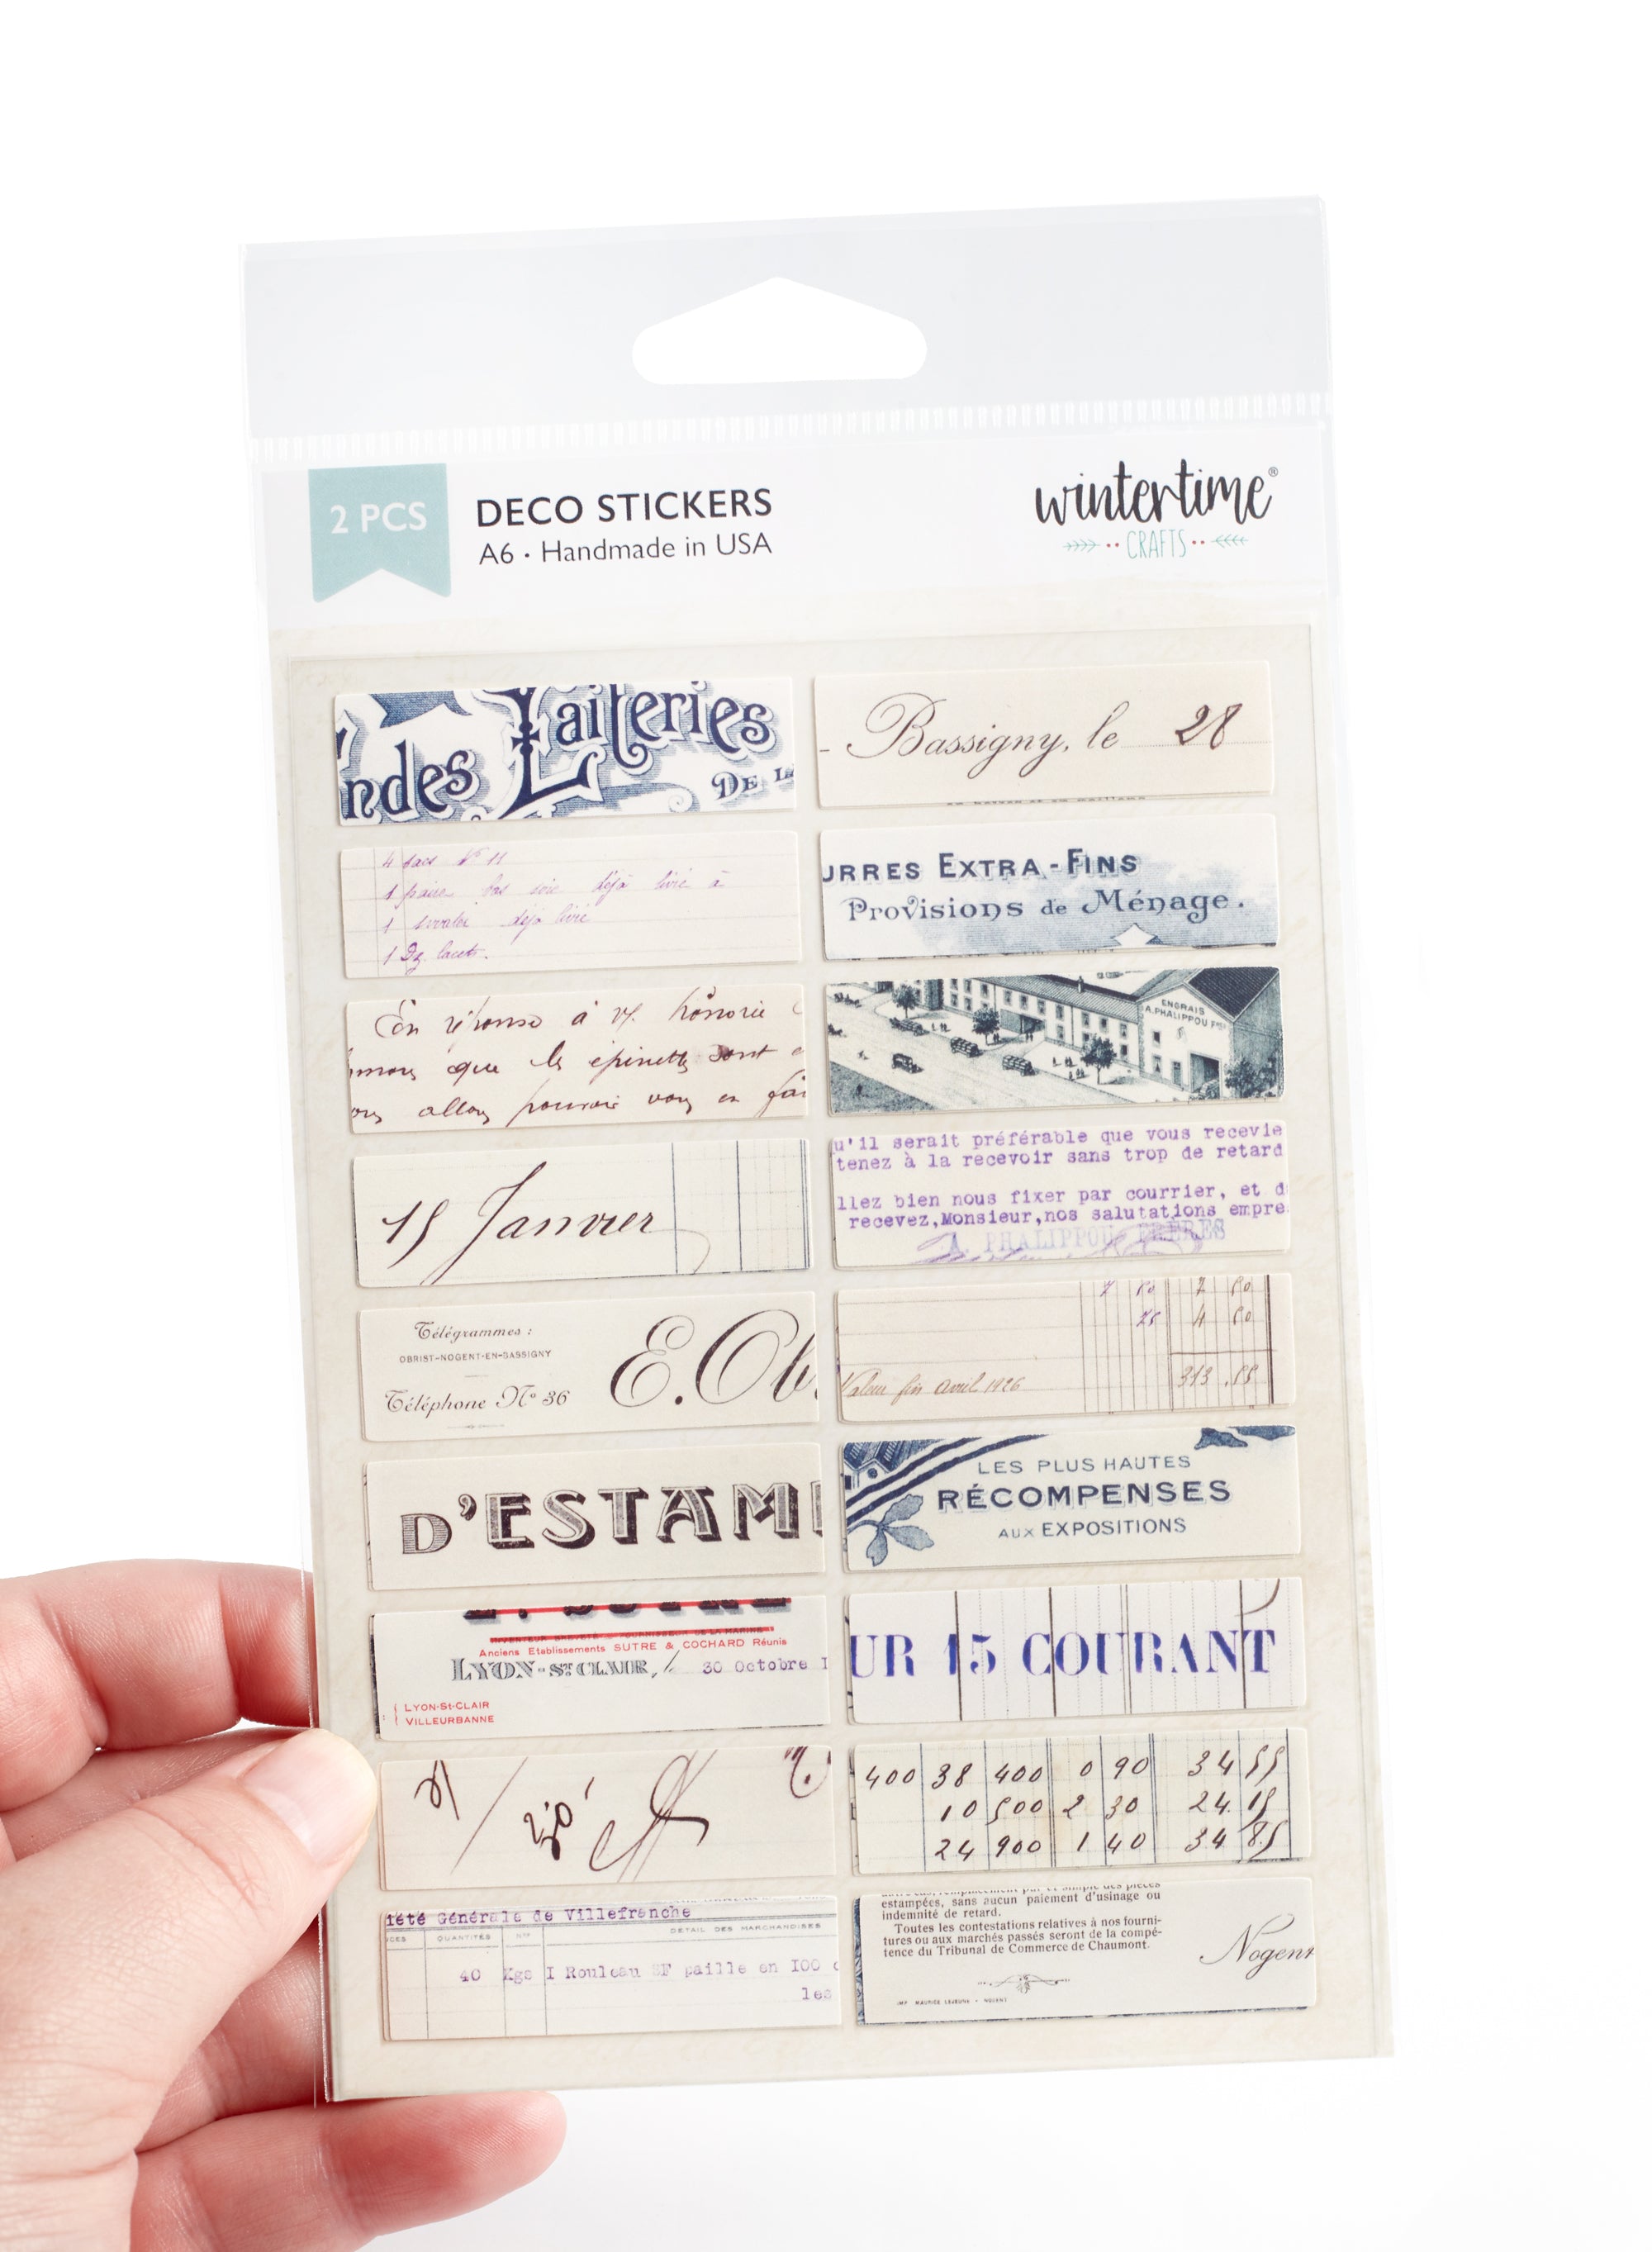 2 PCS
DECO STICKERS
A6 • Handmade in USA
wintertime®
CRAFTS
ndes Laiteries
DE LA
Bassigny, le 28
4 sacs N° 11
1 paire bas soie déjà livré à
1 déjà livré
1 Dz. lacets.
URRES EXTRA-FINS
Provisions de Ménage.
En réponse à honorée
que les épinettes sont
allons pouvoir vous en fai
ENGRAIS
A. PHALIPPOU FRES
15 Janvier
u'il serait préférable que vous recevie
tenez à la recevoir sans trop de retard
llez bien nous fixer par courrier, et d
recevez,Monsieur,nos salutations empre
A. PHALIPPOU FRÈRES
Télégrammes :
OBRIST-NOGENT-EN-BASSIGNY
Téléphone No 36
E.Ob
7 80 7 80
25 4 80
Valeur fin avril 1926
313 .55
D'ESTAM
LES PLUS HAUTES
RÉCOMPENSES
AUX EXPOSITIONS
Anciens Etablissements SUTRE & COCHARD Réunis
LYON-ST CLAIR, l 30 Octobre I
LYON-St-CLAIR
VILLEURBANNE
UR 15 COURANT
400 38 400 0 90 34 55
10 500 2 30 24.15
24 900 1 40 34 85
iété Générale de Villefranche
CES QUANTITÉS DÉTAIL DES MARCHANDISES
40 Kgs I Rouleau SF paille en I00 c
les
estampées, sans aucun paiement d'usinage ou
indemnité de retard.
Toutes les contestations relatives à nos fourni-
tures ou aux marchés passés seront de la compé-
tence du Tribunal de Commerce de Chaumont.
Nogent
IMP. MAURICE LEJEUNE - NOGENT